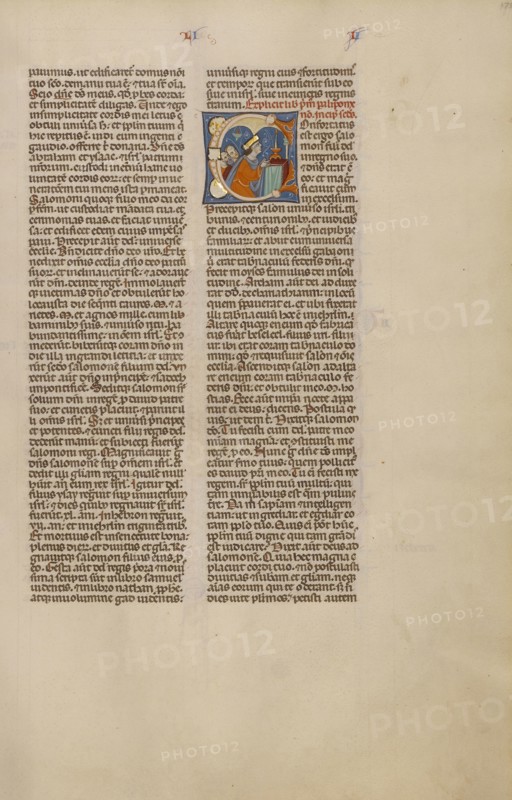 parauimus. ut edificaret domus noi
tuo sco. de manu tua e. et tua st oia.
Scio dne ds meus. qd pbes corda.
et simplicitate diligas. Vnde et ego
in simplicitate cordis mei letus
obtuli uniusa h. et pplm tuum q
hic reptus e. uidi cum ingenti
gaudio. offerre t donaria. Dne ds
abraham et ysaac. et isrl patrum
nrorum. custodi in eternu hanc uo
luntatem cordis eor. et semp in ue
neratoem tui mens ista pmaneat.
Salomoni quoque filio meo da cor
pfcm. ut custodiat mandata tua. et
cerimonias tuas. et faciat uniu
sa. et edificet edem cuius impensas
paui. Precepit aut dd uniuse
ecclie. Bndicite dno deo uro. Et be
nedixit omis ecclia dno deo patru
suor. et inclinauerunt se. et adorauer
unt dm. deinde regem. Immolauerunt
uictimas dno. et obtulerut ho
locausta die sequenti. tauros. M. a
rietes. M. et agnos mille. cum lib
aminibus suis. et uniuso ritu ha
bundantissime. in oem isrl. et co
mederut. et biberut coram dno in
die illa in grandi leticia. et unxe
runt sco salomone filium dd. Vn
xerut aut dno in principe. et sadoch
in pontificem. Seditq; salomon sup
solium dni in rege. p dauid patre
suo. et cunctis placuit. et paruit il
li omis isrl. Sed et uniusi principes
et potentes. et cuncti filii regis dd.
dederut manu. et subiecti fuerut
salomoni regi. Magnificauit g
dns salomone sup omem isrl. et
dedit illi gliam regni. quale null
huit an eum rex isrl. Igitur dd.
filius ysay regnuit sup uniuersum
isrl. et dies quib regnauit sup isrl.
fuerut. xl. ani. In hebron regnuit.
vii. an. et in ierlm triginta trib.
Et mortuus est in senectute bona.
plenus dier. et diuitiis et gla. Re
gnauitq; salomon filius eius. p
eo. Gesta aut dd regis pora et noui
sima scripta sut in libro samuel
uidentis. et in libro nathan pphe.
atq; in uolumine gad uidentis.
uniusiq; regni eius et fortitudinis.
et tempor que transierut sub eo.
siue in isrl. siue in cunctis regnis
terrarum. Explicit lib pm palipome
non. incip scds.
Confortatus
est ergo salo
mon filius dd
in regno suo.
et dns erat c
eo. et mag
nificauit eum
in excelsum.
Precepitq; salon uniuso isrl. tri
bunis. et centurionib. et iudicib
et ducib. omis isrl. et principib
familiar. et abiit cum uniuersa
multitudine in excelsu gabaon
u erat tabnaculu federis dni. qd
fecit moyses famulus dei in soli
tudine. Archam aut dei addux
at dd. de cariathiarim. in locu
quem ppauerat ei. et ubi fixerat
illi tabnaculu hoc e in ierlm.
Altare quoq; eneum qd fabrica
tus fuat beseleel. filius uri. filii
ur. ibi erat coram tabnaculo do
mini. qd et requisiuit salon et ois
ecclia. Ascenditq; salon ad alta
re eneum coram tabnaculo fe
deris dni. et obtulit in eo. m. ho
stias. Ecce aut in ipa nocte appa
ruit ei deus. dicens. Postula q
uis. ut dem t. Dixitq; salomon
deo. Tu fecisti cum dd. patre meo
miam magna. et ostituisti me
rege p eo. Nunc g dne ds impl
eatur smo tuus. quem pollicit
es dauid pri meo. Tu ei fecisti me
regem sup pplm tuu multu. qui
tam innuabilis est qm puluis
tre. Da m sapiam et intelligen
tiam. ut ingrediar. et egrediar co
ram pplo tuo. Quis ei pot hunc
pplm tuu digne qui tam gradis
est iudicare. Dixit aut deus ad
salomone. Quia hoc magis
placuit cordi tuo. et no postulasti
diuitias. et subam et gliam. neq;
aias eorum qui te oderant. sed n
dies uite plimos. petisti autem